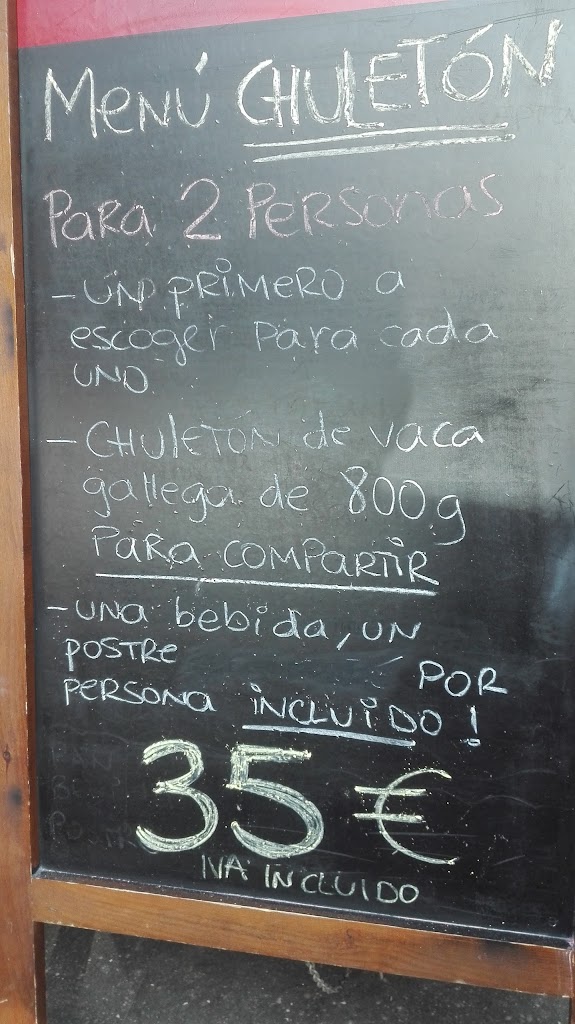 Menú CHULETÓN
Para 2 Personas
- UN PRIMERO a
escoger Para cada
UNO
- CHULETON de vaca
gallega de 800g
PARA COMPARTIR
- UNA bebida, UN
POSTRE POR
PERSONA INCLUIDO!
35 €
IVA INCLUIDO